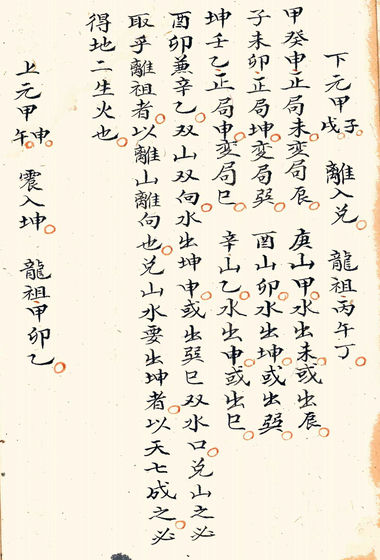 下元甲子戌 離入兌 龍祖丙午丁
甲癸申正局未変局辰 庚山甲水出未或出辰
子未卯正局坤変局巽 酉山卯水出坤或出巽
坤壬乙正局申変局巳 辛山乙水出申或出巳
酉卯兼辛乙双山双向水出坤申或出巽巳双水口兌山之必
取乎離祖者以離山離向也兌山水要出坤者以天七成之必
得地二生火也
上元甲申午 震入坤 龍祖甲卯乙